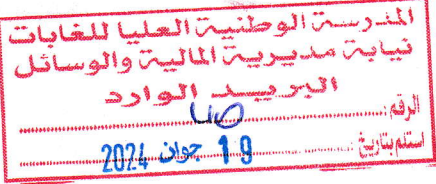 المدرسة الوطنية العليا للغابات
نيابة مديرية المالية والوسائل
البريد الوارد
الرقم:
استلم بتاريخ: 19 جوان 2024